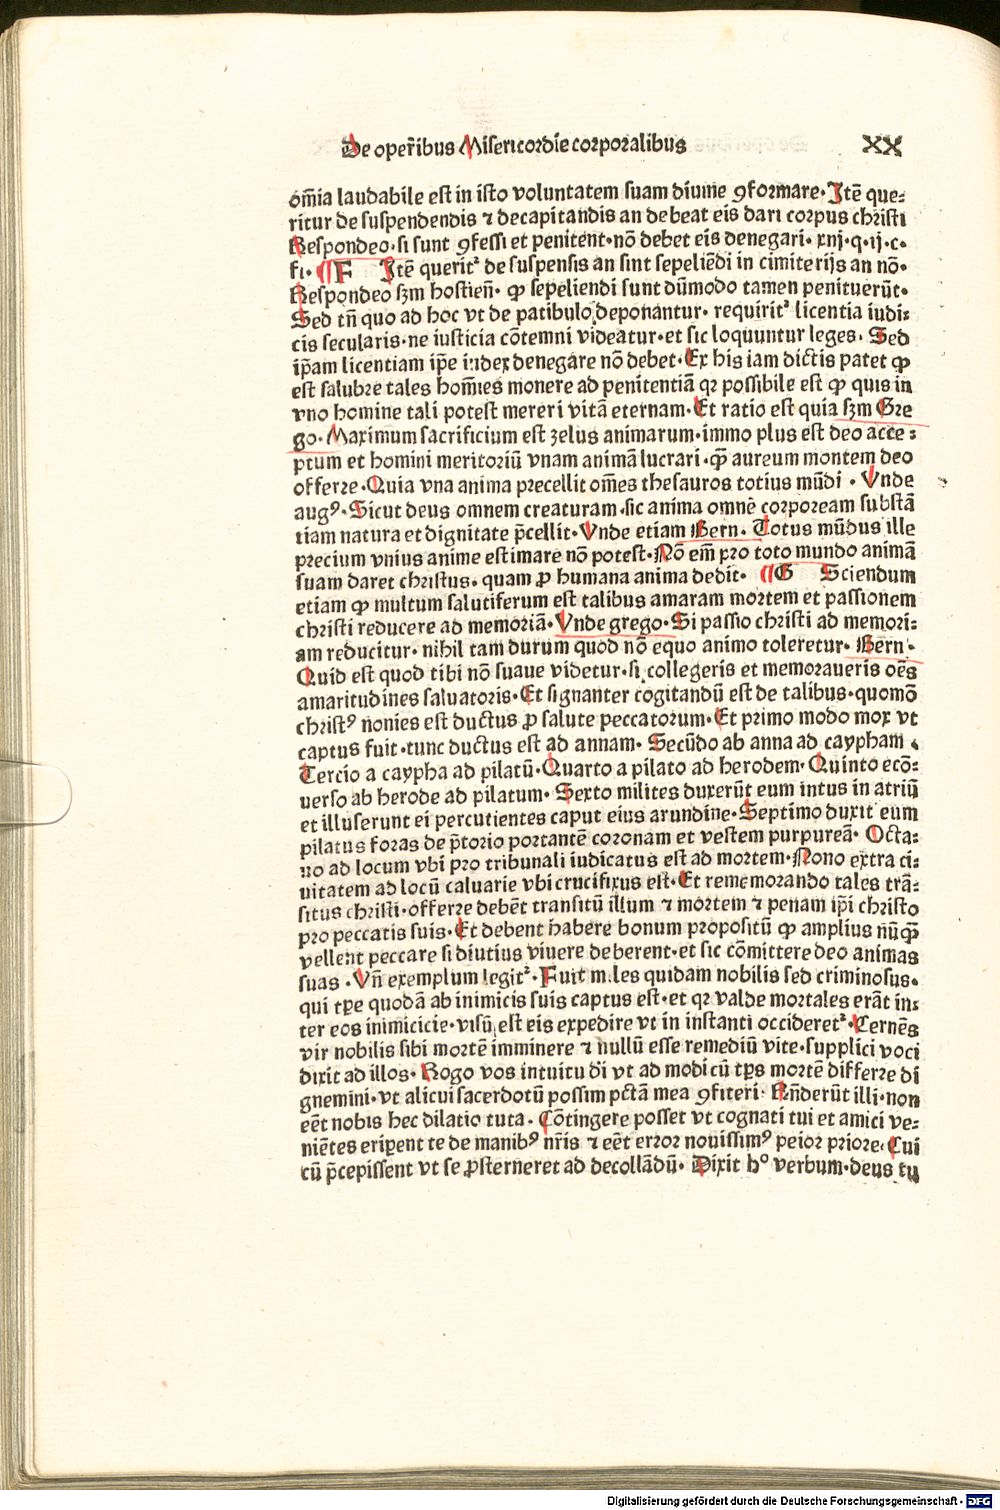 De oper̄ibus Misericordie corporalibus XX
om̄ia laudabile est in isto voluntatem suam diuine ꝯformare. Itē que⸗
ritur de suspendendis ⁊ decapitandis an debeat eis dari corpus christi
Respondeo. si sunt ꝯfessi et penitent. nō debet eis denegari. xnj. q. ij. c.
fi. ¶ F Itē querit᷑ de suspensis an sint sepeliēdi in cimiterijs an nō.
Respondeo sꝫm hostien̄. ꝙ sepeliendi sunt dūmodo tamen penituerūt.
Sed tn̄ quo ad hoc vt de patibulo deponantur. requirit᷑ licentia iudi⸗
cis secularis. ne iusticia cōtemni videatur. et sic loquuntur leges. Sed
ip̄am licentiam ip̄e iudex denegare nō debet. Ex his iam dictis patet ꝙ
est salubre tales hom̄ies monere ad penitentiā qꝛ possibile est ꝙ quis in
vno homine tali potest mereri vitā eternam. Et ratio est quia sꝫm Gre
go. Maximum sacrificium est zelus animarum. immo plus est deo acce⸗
ptum et homini meritoriū vnam animā lucrari. qͣꝫ aureum montem deo
offerre. Quia vna anima precellit om̄es thesauros totius mūdi. Vnde
augꝰ. Sicut deus omnem creaturam. sic anima omnē corpoream substā
tiam natura et dignitate p̄cellit. Vnde etiam Bern. Totus mūdus ille
precium vnius anime estimare nō potest. Nō em̄ pro toto mundo animā
suam daret christus. quam ꝓ humana anima dedit. ¶ G Sciendum
etiam ꝙ multum salutiferum est talibus amaram mortem et passionem
christi reducere ad memoriā. Vnde grego. Si passio christi ad memori⸗
am reducitur. nihil tam durum quod nō equo animo toleretur. Bern.
Quid est quod tibi nō suaue videtur. si collegeris et memoraueris oēs
amaritudines saluatoris. Et signanter cogitandū est de talibus. quomō
christꝰ nonies est ductus ꝓ salute peccatorum. Et primo modo mox vt
captus fuit. tunc ductus est ad annam. Secūdo ab anna ad caypham.
Tercio a caypha ad pilatū. Quarto a pilato ad herodem. Quinto ecō⸗
uerso ab herode ad pilatum. Sexto milites duxerūt eum intus in atriū
et illuserunt ei percutientes caput eius arundine. Septimo duxit eum
pilatus foras de p̄torio portantē coronam et vestem purpureā. Octa⸗
uo ad locum vbi pro tribunali iudicatus est ad mortem. Nono extra ci⸗
uitatem ad locū caluarie vbi crucifixus est. Et rememorando tales trā⸗
situs christi. offerre debēt transitū illum ⁊ mortem ⁊ penam ip̄i christo
pro peccatis suis. Et debent habere bonum propositū ꝙ amplius nūqͣꝫ
vellent peccare si diutius viuere deberent. et sic cōmittere deo animas
suas. Vn̄ exemplum legit᷑. Fuit miles quidam nobilis sed criminosus.
qui tꝑe quodā ab inimicis suis captus est. et qꝛ valde mortales erāt in⸗
ter eos inimicicie. visū est eis expedire vt in instanti occideret᷑. Cernēs
vir nobilis sibi mortē imminere ⁊ nullū esse remediū vite. supplici voci
dixit ad illos. Rogo vos intuitu di vt ad modicū tꝑs mortē differre di
gnemini. vt alicui sacerdotū possim pctā mea ꝯfiteri. Rn̄derūt illi. non
eēt nobis hec dilatio tuta. Cōtingere posset vt cognati tui et amici ve⸗
niētes eriꝑent te de manibꝰ nr̄is ⁊ eēt error nouissimꝰ peior priore. Cui
cū p̄cepissent vt se ꝓsterneret ad decollādū. Dixit hº verbum. deus tu
Digitalisierung gefördert durch die Deutsche Forschungsgemeinschaft - DFG